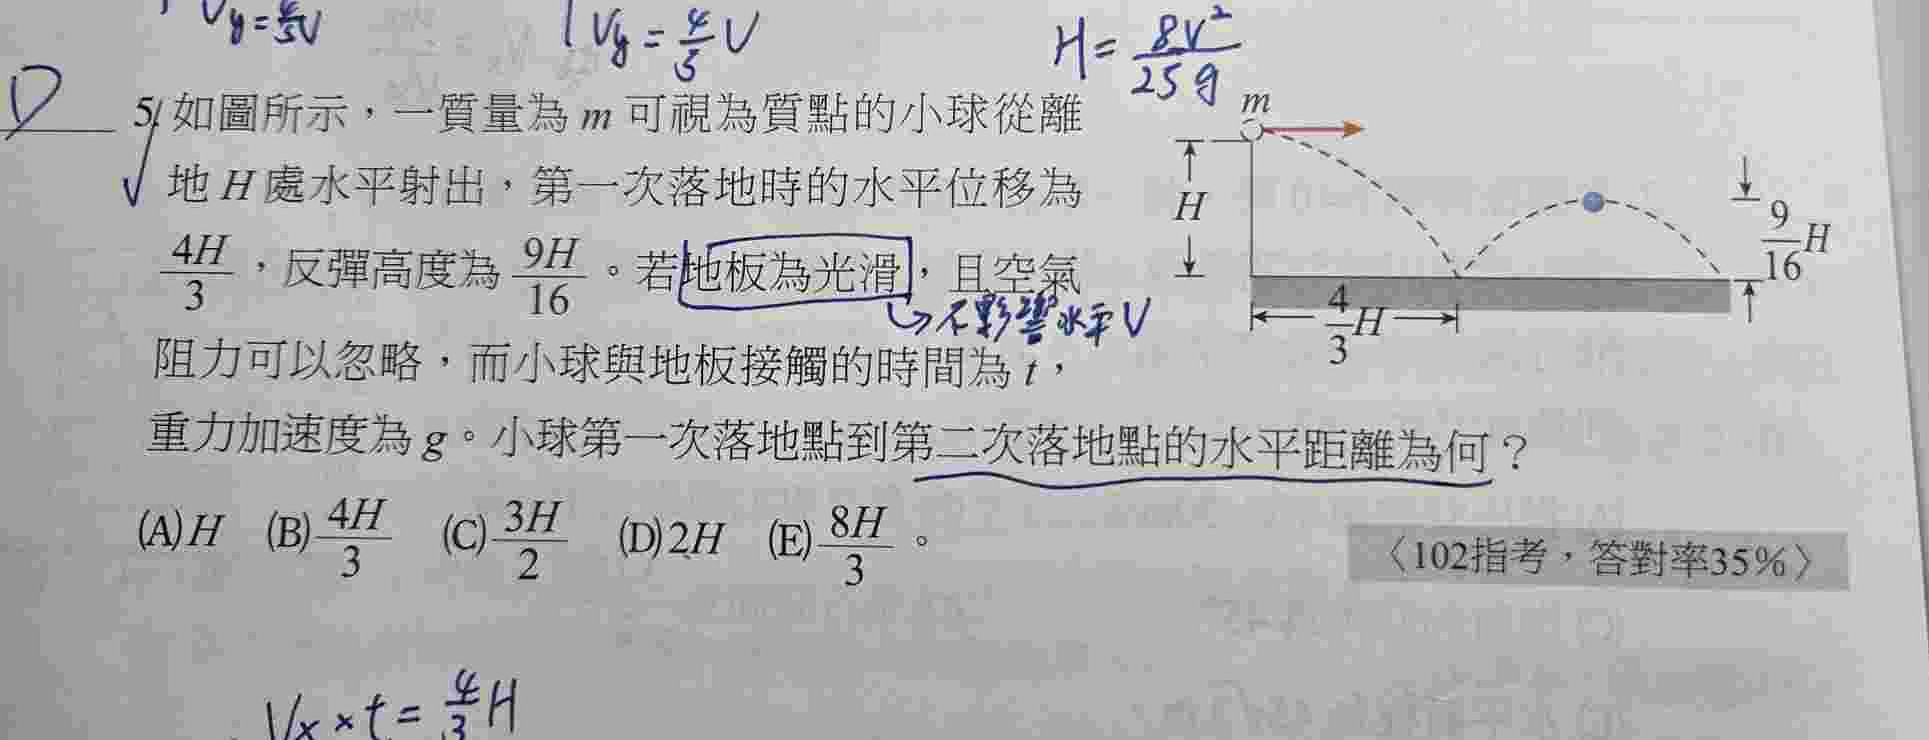 Vy=4/5V
Vy=4/5V
H=8V²/25g
D
5. 如圖所示，一質量為 m 可視為質點的小球從離
地 H 處水平射出，第一次落地時的水平位移為
4H/3，反彈高度為 9H/16。若地板為光滑，且空氣
↳不影響水平V
阻力可以忽略，而小球與地板接觸的時間為 t，
重力加速度為 g。小球第一次落地點到第二次落地點的水平距離為何？
(A)H (B)4H/3 (C)3H/2 (D)2H (E)8H/3。
〈102指考，答對率35%〉
m
H
9/16H
4/3H
Vx×t=4/3H